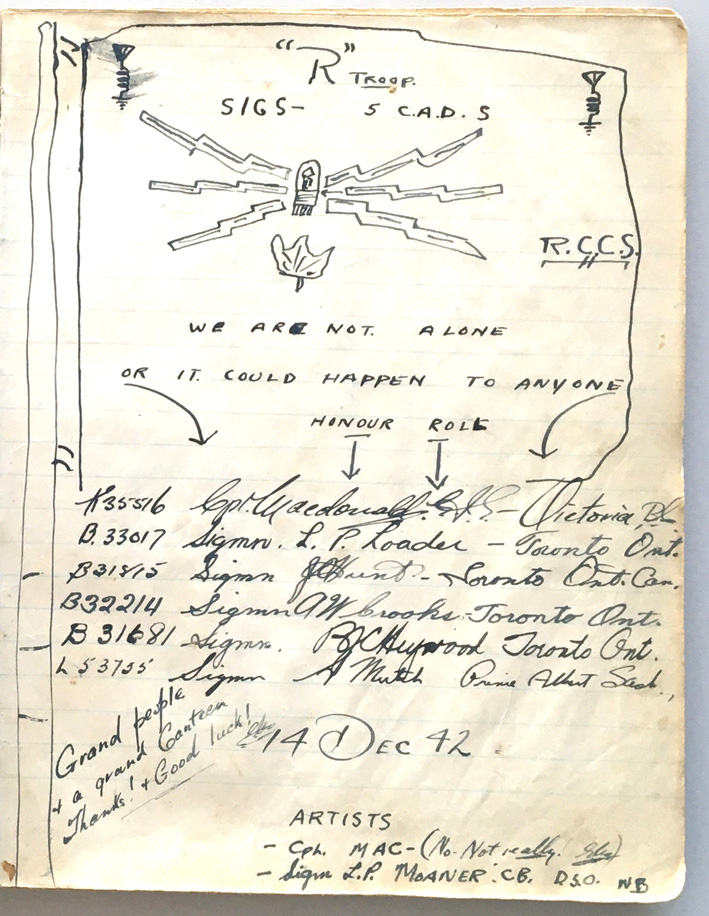 "R" TROOP.
SIGS- 5 C.A.D. S
R.C.C.S.
WE ARE NOT. ALONE
OR IT. COULD HAPPEN TO ANYONE
HONOUR ROLL
K35516 Cpl. Macdonald. - Victoria, B.C.
B.33017 Sigmn. L. P. Loader - Toronto Ont.
B31815 Sigmn Hunt - Toronto Ont. Can.
B32214 Sigmn AW Crooks - Toronto Ont.
B 31681 Sigmn. Heywood Toronto Ont.
L 53755 Sigmn A Mutch Prince Albert Sask.,
Grand people
+ a grand Canteen
Thanks! + Good luck!
14 DEC 42
ARTISTS
- Cpl. MAC - (No. Not really!
- Sigm L.P. MOANER. C.B. D.S.O. NB